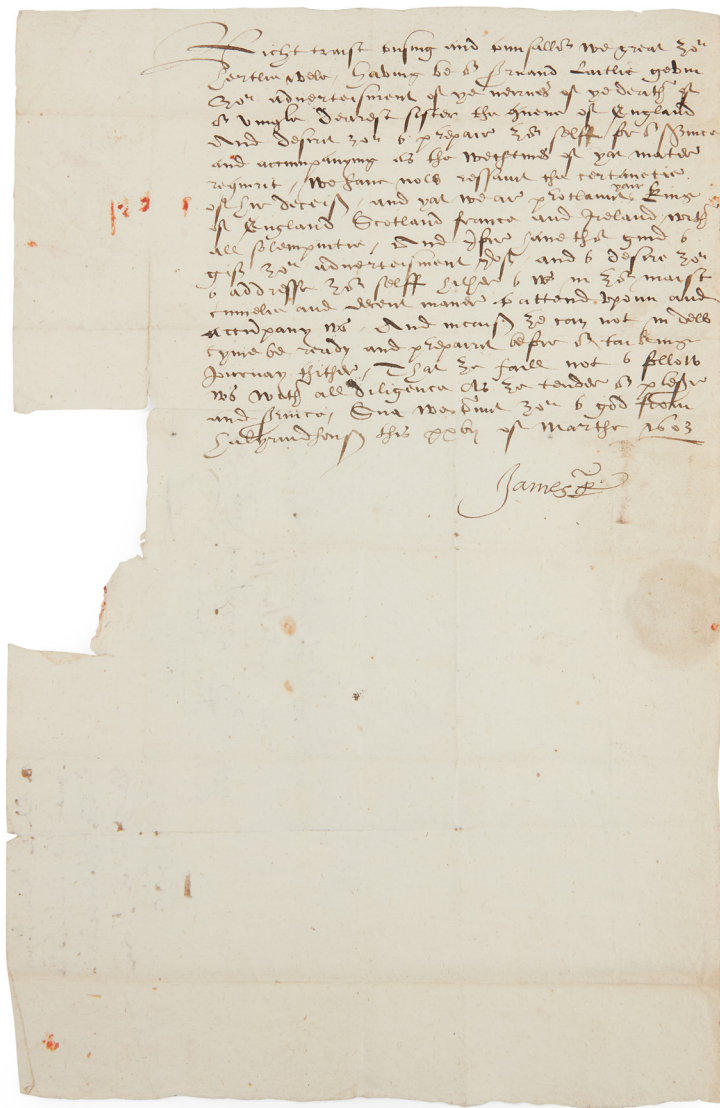 Richt traist cusing and counsallor we greit zor
hertlie wele, Having be or servand laitlie gevin
zow advertisment of ye newes of ye death of
or umqle dearest sister the quene of England
And desirit zow to prepair zor selff for or service
and accumpanying as the wechtines of yat mater
requirit, We have nows ressavit the certantie
of hir deceis, and yat we ar proclamit yair King
of England Scotland france and Ireland, with
all solempnitie, And yfoir have tht gud to
gif zow advertisment yrof and to desire zow
to addresse zor selff hither to ws in zor maist
cumelie and decent maner to attend upoun and
accumpany ws, And incais ze can not in dew
tyme be ready and prepairit befoir or taiking
Journay thither, That ze faill not to follow
ws with all diligence As ze tender or plesr
and service, Sua we comit zow to god from
halyrudhous this xxvij of Marche 1603
James R